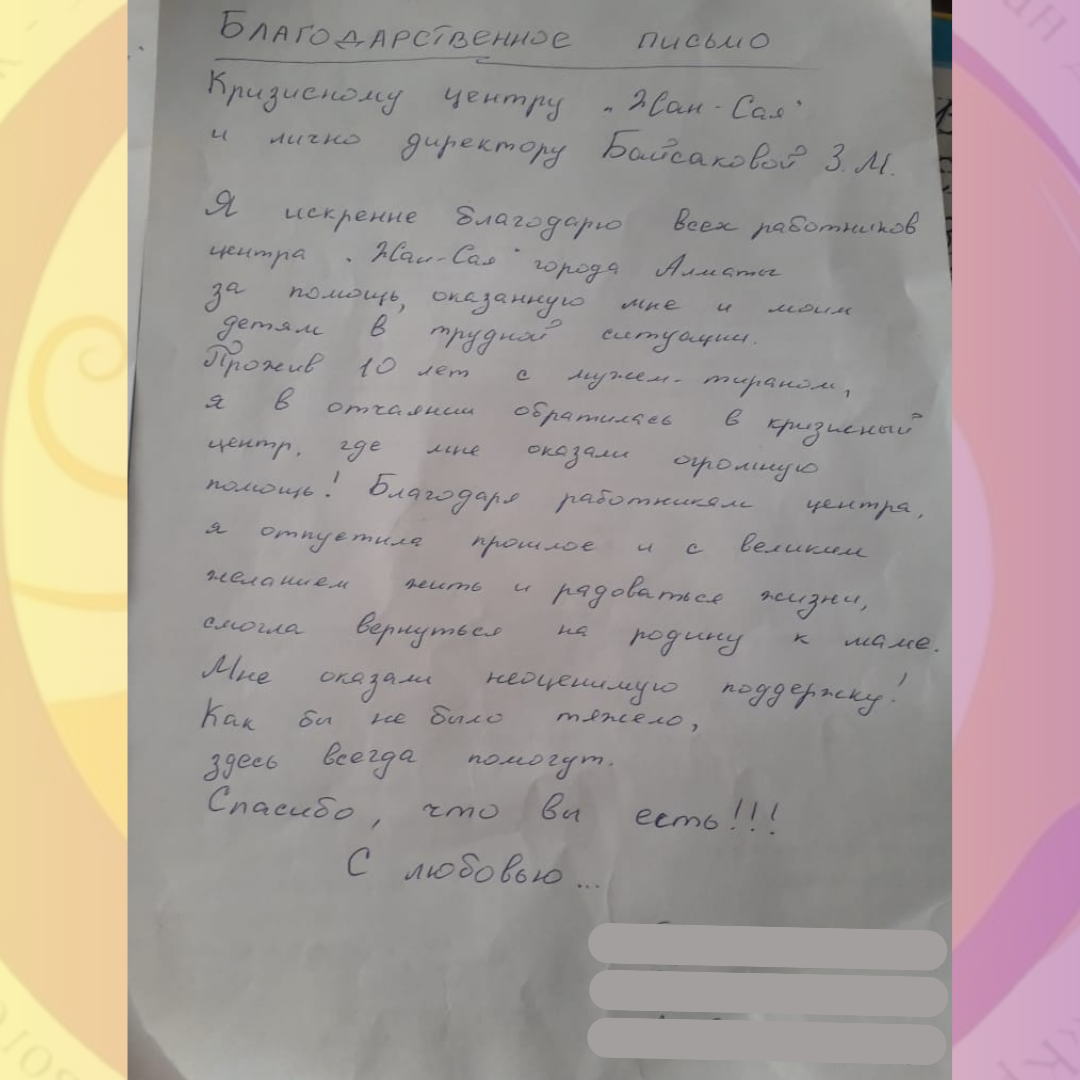 Благодарственное письмо
Кризисному центру „Жан-Сая"
и лично директору Байсаковой З.М.
Я искренне благодарю всех работников
центра „Жан-Сая" города Алматы
за помощь, оказанную мне и моим
детям в трудной ситуации.
Прожив 10 лет с мужем-тираном,
я в отчаянии обратилась в кризисный
центр, где мне оказали огромную
помощь! Благодаря работникам центра,
я отпустила прошлое и с великим
желанием жить и радоваться жизни,
смогла вернуться на родину к маме.
Мне оказали неоценимую поддержку!
Как бы не было тяжело,
здесь всегда помогут.
Спасибо, что вы есть!!!
С любовью...